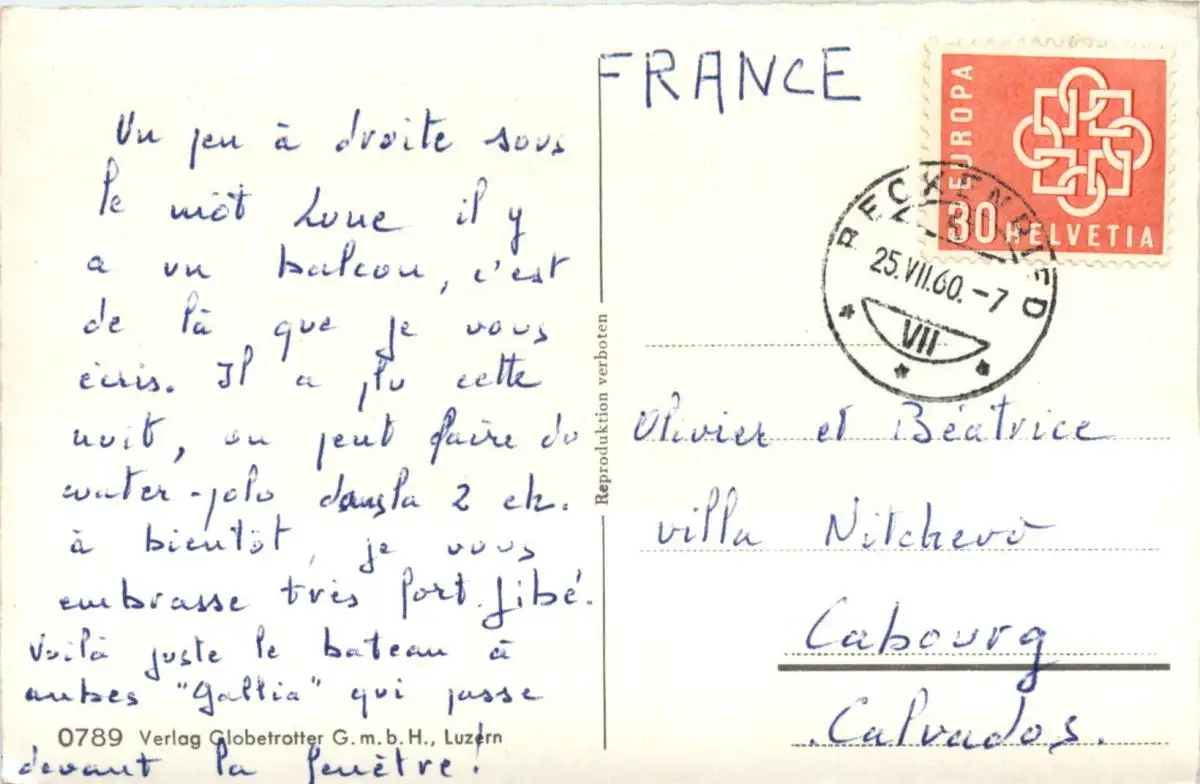 Un peu à droite sous
le mot Zoue il y
a un balcon, c'est
de là que je vous
écris. Il a plu cette
nuit, on peut faire du
water-polo dans la 2 ch.
à bientôt, je vous
embrasse très fort. Jibé.
Voilà juste le bateau à
aubes "Gallia" qui passe
devant la fenêtre!
0789 Verlag Globetrotter G.m.b.H., Luzern
Reproduktion verboten
FRANCE
EUROPA
30 HELVETIA
BECKENRIED
25.VII.60.-7
VII
Olivier et Béatrice
villa Nitchevo
Cabourg
Calvados.